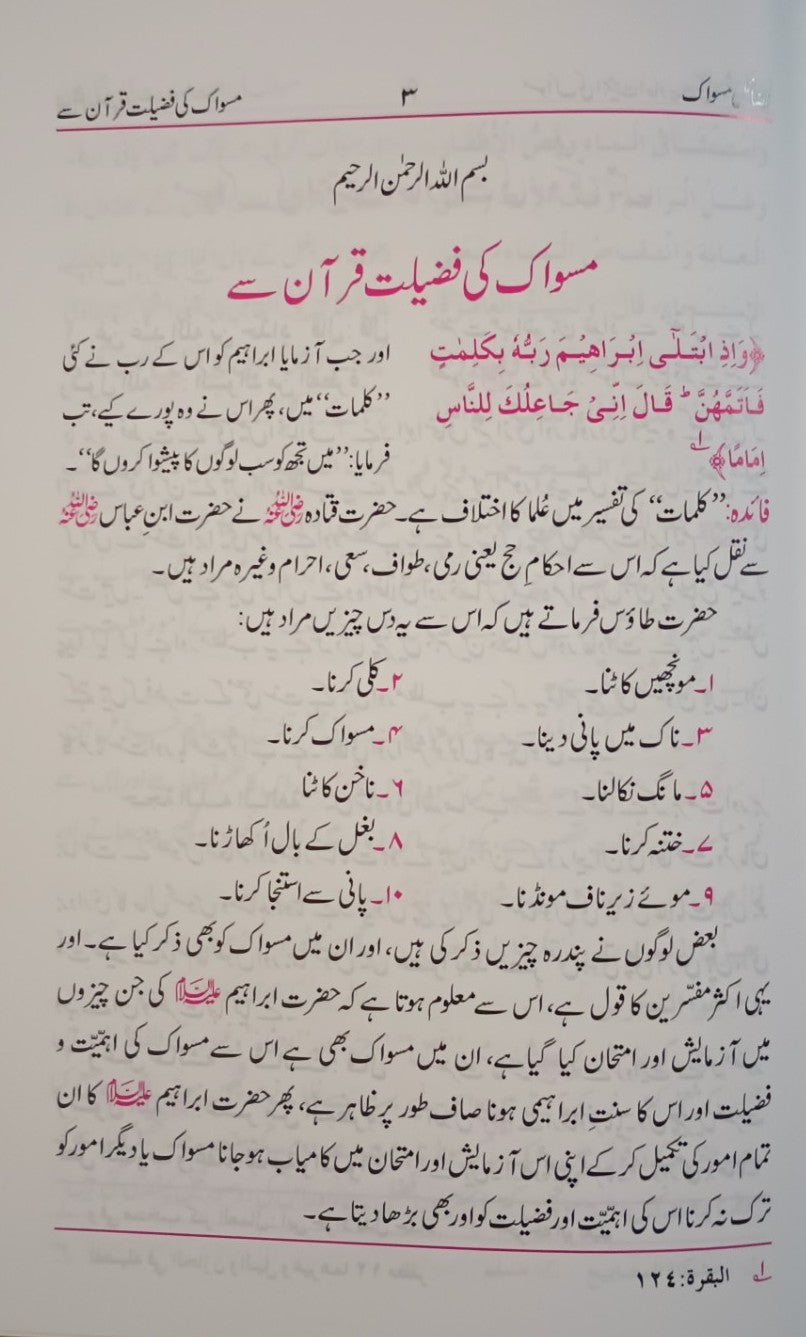 مسواک ۳ مسواک کی فضیلت قرآن سے
بسم اللہ الرحمٰن الرحیم
مسواک کی فضیلت قرآن سے
﴿وَاِذِ ابْتَلٰٓی اِبْرَاهِیْمَ رَبُّهٗ بِکَلِمٰتٍ
فَاَتَمَّهُنَّ ؕ قَالَ اِنِّیْ جَاعِلُكَ لِلنَّاسِ
اِمَامًا﴾ ۱؎
اور جب آزمایا ابراہیم کو اس کے رب نے کئی
’’کلمات‘‘ میں، پھر اس نے وہ پورے کیے، تب
فرمایا: ’’میں تجھ کو سب لوگوں کا پیشوا کروں گا‘‘۔
فائدہ: ’’کلمات‘‘ کی تفسیر میں عُلما کا اختلاف ہے۔ حضرت قتادہ رضی اللہ عنہ نے حضرت ابنِ عباس رضی اللہ عنہ
سے نقل کیا ہے کہ اس سے احکامِ حج یعنی رمی، طواف، سعی، احرام وغیرہ مراد ہیں۔
حضرت طاؤس فرماتے ہیں کہ اس سے یہ دس چیزیں مراد ہیں:
۱۔ مونچھیں کاٹنا۔ ۲۔ کلی کرنا۔
۳۔ ناک میں پانی دینا۔ ۴۔ مسواک کرنا۔
۵۔ مانگ نکالنا۔ ۶۔ ناخن کاٹنا
۷۔ ختنہ کرنا۔ ۸۔ بغل کے بال اُکھاڑنا۔
۹۔ موئے زیرِ ناف مونڈنا۔ ۱۰۔ پانی سے استنجا کرنا۔
بعض لوگوں نے پندرہ چیزیں ذکر کی ہیں، اور ان میں مسواک کو بھی ذکر کیا ہے۔ اور
یہی اکثر مفسّرین کا قول ہے، اس سے معلوم ہوتا ہے کہ حضرت ابراہیم علیہ السلام کی جن چیزوں
میں آزمایش اور امتحان کیا گیا ہے، ان میں مسواک بھی ہے اس سے مسواک کی اہمیّت و
فضیلت اور اس کا سنتِ ابراہیمی ہونا صاف طور پر ظاہر ہے، پھر حضرت ابراہیم علیہ السلام کا ان
تمام امور کی تکمیل کر کے اپنی اس آزمایش اور امتحان میں کامیاب ہو جانا مسواک یا دیگر امور کو
ترک نہ کرنا اس کی اہمیّت اور فضیلت کو اور بھی بڑھا دیتا ہے۔
۱؎ البقرة: ۱۲٤